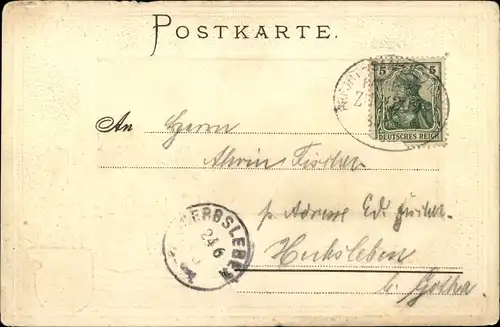 POSTKARTE.
5 5
DEUTSCHES REICH
An Herrn
Alwin Fischer
p. Adresse Ed. Fischer
HERBSLEBEN
24 6
b. Gotha